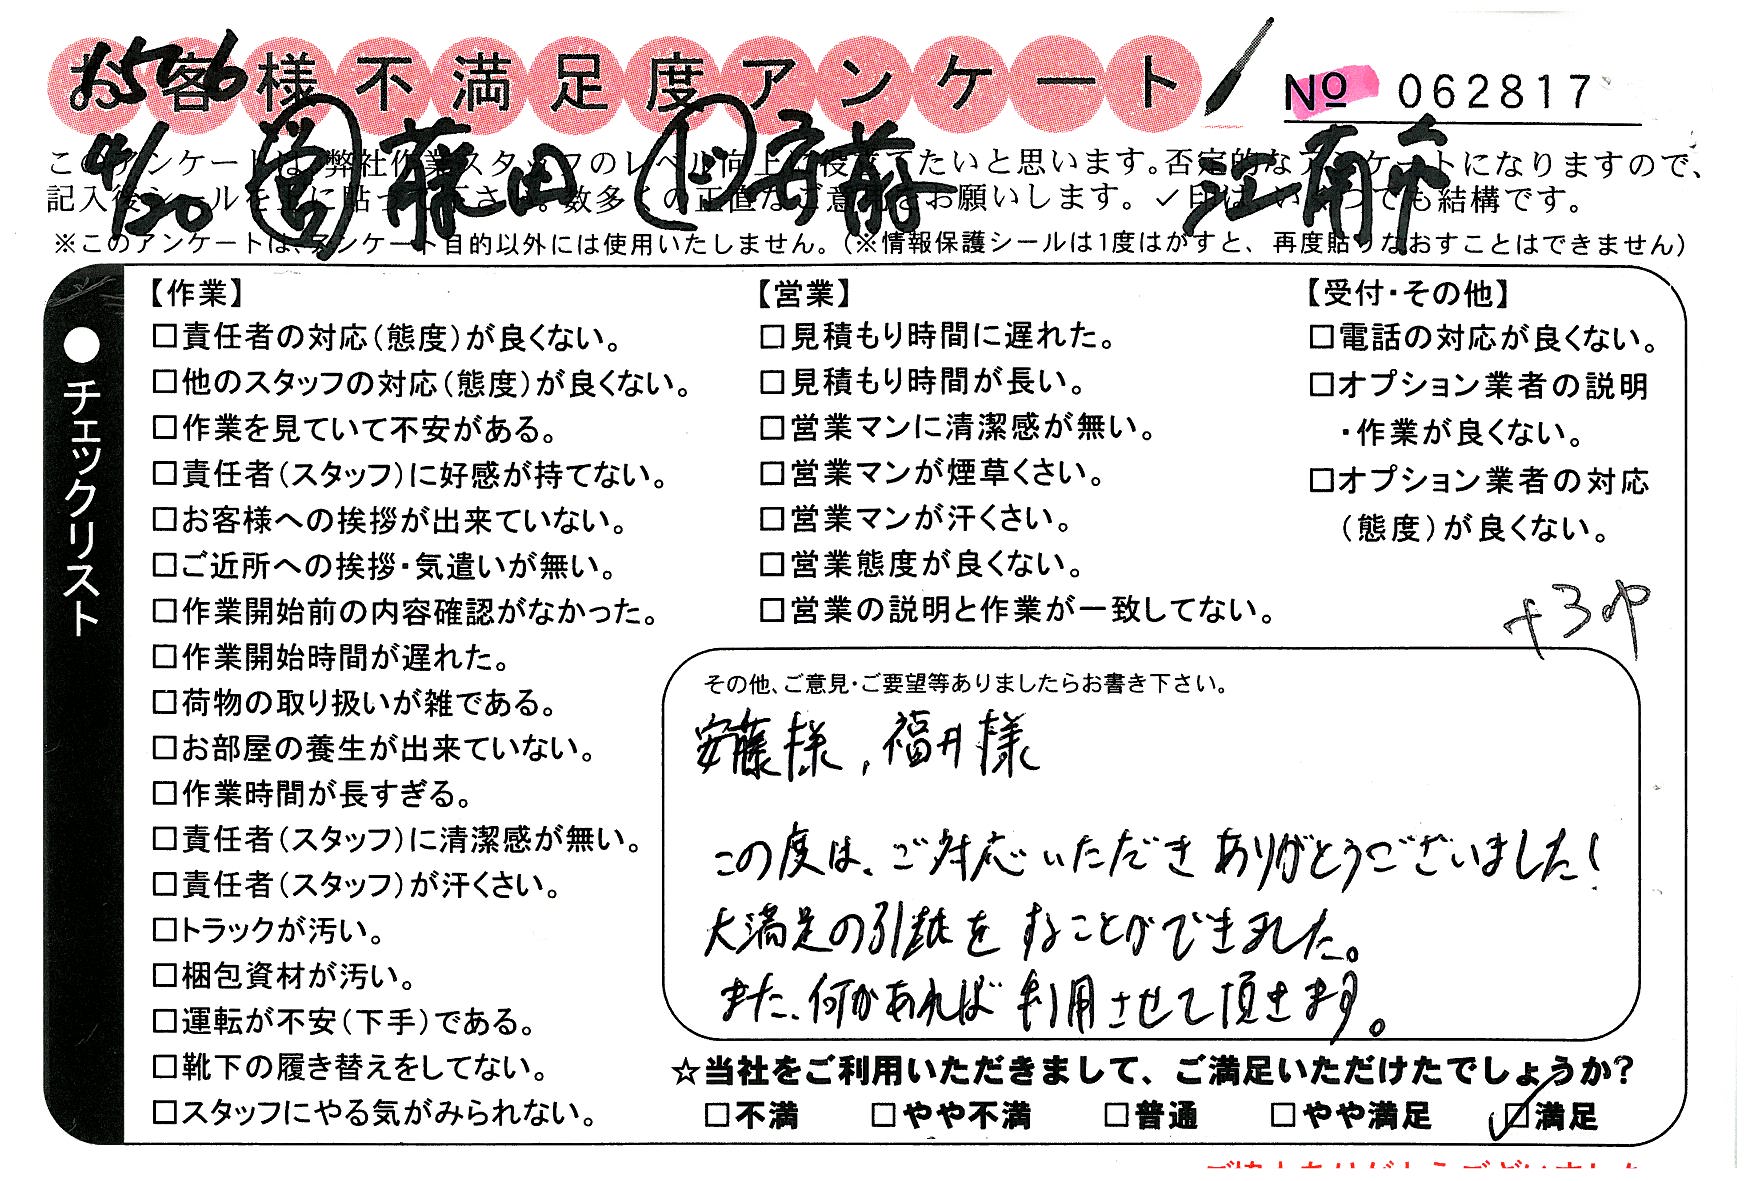 お客様不満足度アンケート
No 062817
1576
4/20 営 藤田 作 安藤 江南市
このアンケートは、弊社作業スタッフのレベル向上に役立てたいと思います。否定的なアンケートになりますので、
記入後シールを上に貼って下さい。数多くの正直なご意見をお願いします。✓印はいくつでも結構です。
※このアンケートは、アンケート目的以外には使用いたしません。(※情報保護シールは1度はがすと、再度貼りなおすことはできません)
●チェックリスト
【作業】
□責任者の対応(態度)が良くない。
□他のスタッフの対応(態度)が良くない。
□作業を見ていて不安がある。
□責任者(スタッフ)に好感が持てない。
□お客様への挨拶が出来ていない。
□ご近所への挨拶・気遣いが無い。
□作業開始前の内容確認がなかった。
□作業開始時間が遅れた。
□荷物の取り扱いが雑である。
□お部屋の養生が出来ていない。
□作業時間が長すぎる。
□責任者(スタッフ)に清潔感が無い。
□責任者(スタッフ)が汗くさい。
□トラックが汚い。
□梱包資材が汚い。
□運転が不安(下手)である。
□靴下の履き替えをしてない。
□スタッフにやる気がみられない。
【営業】
□見積もり時間に遅れた。
□見積もり時間が長い。
□営業マンに清潔感が無い。
□営業マンが煙草くさい。
□営業マンが汗くさい。
□営業態度が良くない。
□営業の説明と作業が一致してない。
【受付・その他】
□電話の対応が良くない。
□オプション業者の説明
・作業が良くない。
□オプション業者の対応
(態度)が良くない。
+3
その他、ご意見・ご要望等ありましたらお書き下さい。
安藤様, 福井様
この度は、ご対応いただきありがとうございました!
大満足の引越をすることができました。
また、何かあれば利用させて頂きます。
☆当社をご利用いただきまして、ご満足いただけたでしょうか?
□不満 □やや不満 □普通 □やや満足 ☑満足